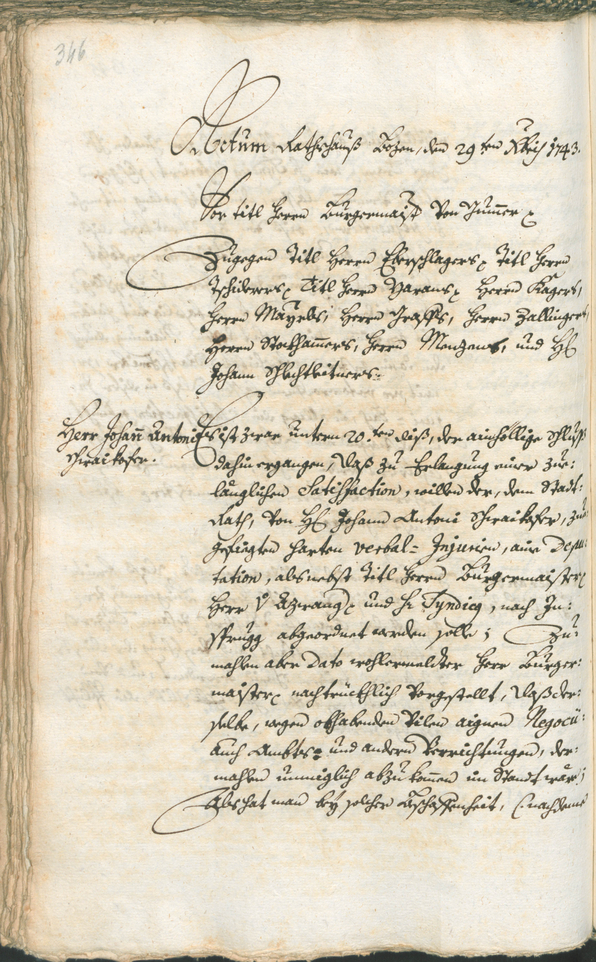 346
Actum Rathshauß Bozen, den 29ten Xbris 1743.
Vor titl Herrn Burgermaister von Hummer
Zugegen Titl Herrn Eberschlagers, Titl Herrn
Tschiderers, Titl Herrn Zaraus, Herrn Kagers,
Herrn Mayrls, Herrn Graffs, Herrn Zallingers,
Herrn Stockhamers, Herrn Menzens, und H:
Johann Schlechtleitners.
Herr Johann Antoni
Straikofer.
Es ist zwar unterm 20.ten diß, der ainhöllige Schluß
dahin ergangen, daß zu Erlangung einer zue:
länglichen Satisfaction, willen der, dem Stadt:
Rath, von H: Johann Antoni Straikofer, zue
gefiegten harten verbal-Injurien, aine Depu:
tation, als nebst Titl Herrn Burgermaister
Herr v und H: Syndicq, nach In:
sprugg abgeordnet werden solle; Zu:
mahlen aber dato wohlermeldter Herr Burger:
maister nachtrücklich vorgestellt, daß der:
selbe, wegen obhabenden vilen aignen Negocii:
auch Ambts: und andern Verrichtungen, der:
mahlen unmiglich abzukommen im Standt wäre;
Als hat man bey solcher Bschaffenheit, (:nachdeme